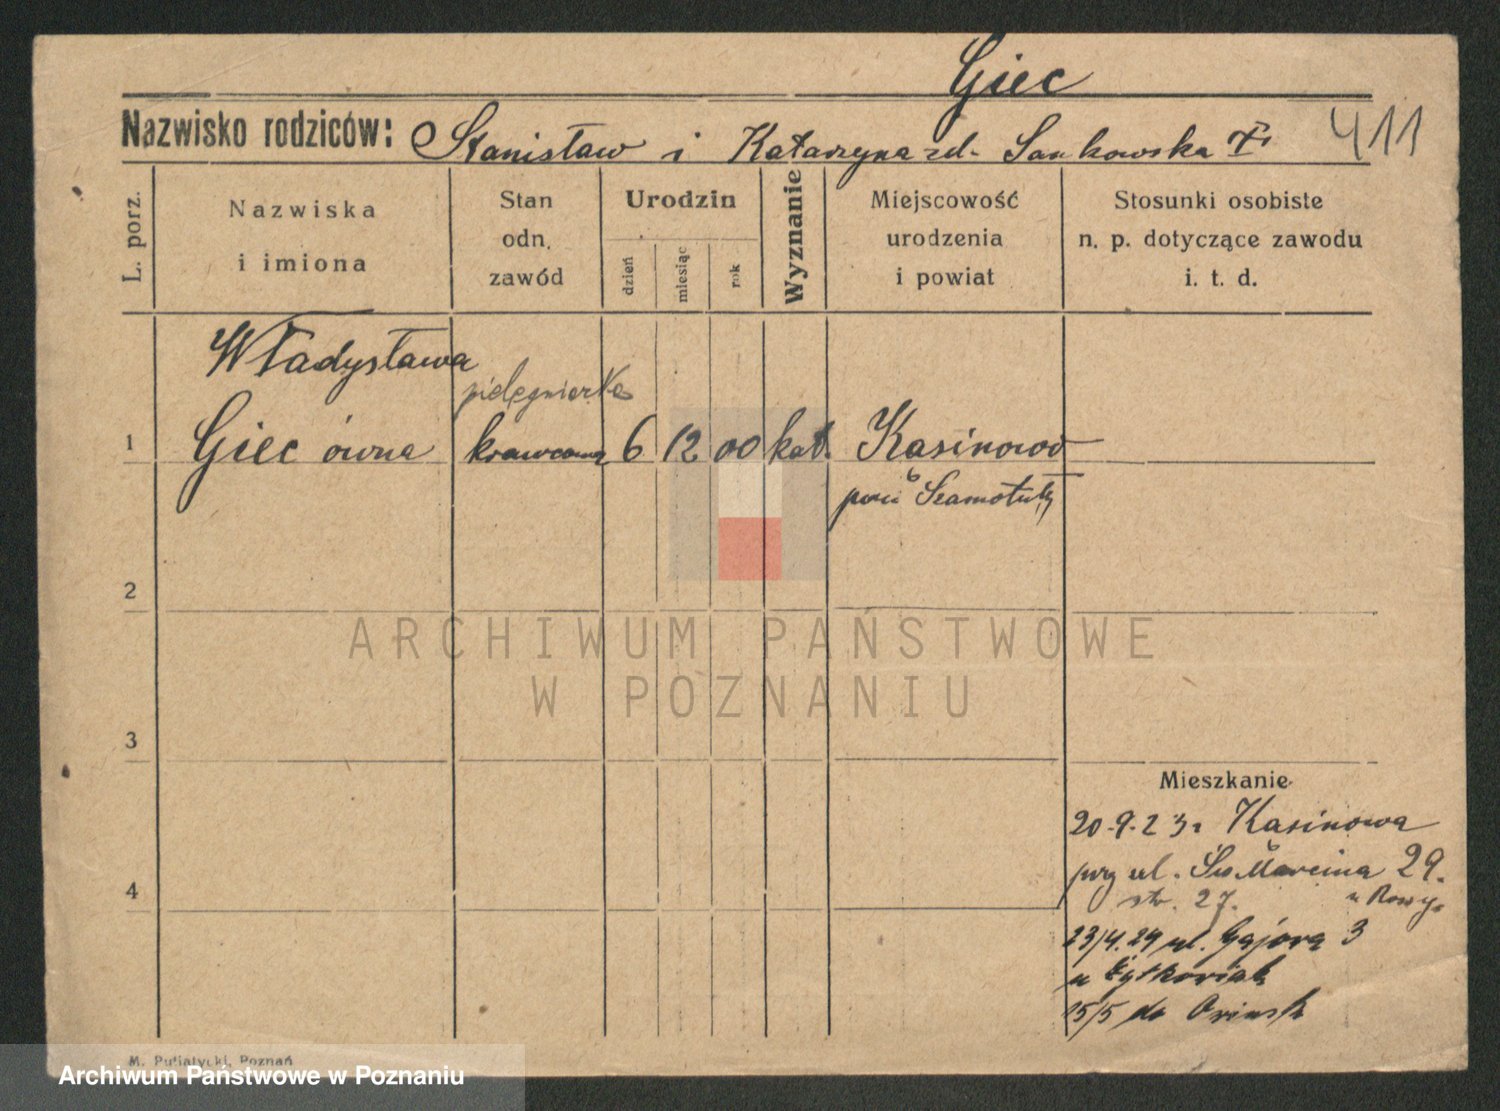 Giec
Nazwisko rodziców: Stanisław i Katarzyna zd. Sankowska
411
L. porz.
Nazwiska
i imiona
Stan
odn.
zawód
Urodzin
dzień
miesiąc
rok
Wyznanie
Miejscowość
urodzenia
i powiat
Stosunki osobiste
n. p. dotyczące zawodu
i. t. d.
Władysława
pielęgniarka
1 Giecówna krawcowa 6 12 00 kat. Kasinowo
pow Szamotuły
2
ARCHIWUM PAŃSTWOWE
W POZNANIU
3
Mieszkanie
20-9-23 Kasinowa
przy ul. Św Marcina 29.
str. 27.
23/4.24 ul. Gajora 3
u
15/5 do
4
M. Putiatycki, Poznań
Archiwum Państwowe w Poznaniu